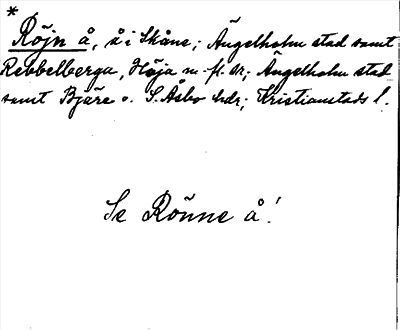 *
Röjn å, å i Skåne; Ängelholm stad samt
Rebbelberga, Höja m. fl. sr; Ängelholm stad
samt Bjäre o. S. Åsbo hdr; Kristianstads l.
Se Rönne å!